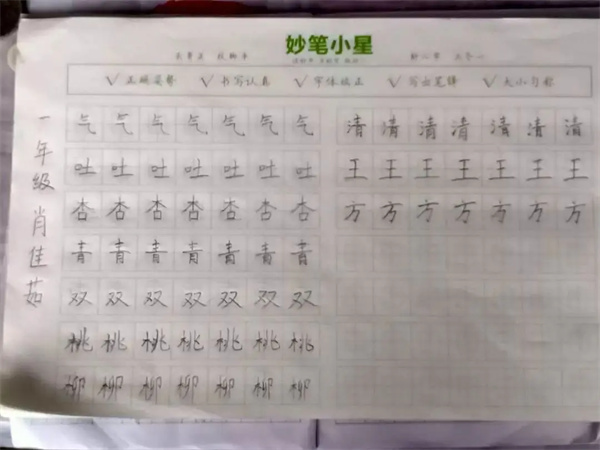 妙笔小星
正确姿势 书写认真 字体端正 写出笔锋 大小匀称
一年级 肖佳茹
气 气 气 气 气 气 气
吐 吐 吐 吐 吐 吐 吐
杏 杏 杏 杏 杏 杏 杏
青 青 青 青 青 青 青
双 双 双 双 双 双 双
桃 桃 桃 桃 桃 桃 桃
柳 柳 柳 柳 柳 柳 柳
清 清 清 清 清 清 清
王 王 王 王 王 王 王
方 方 方 方 方 方 方